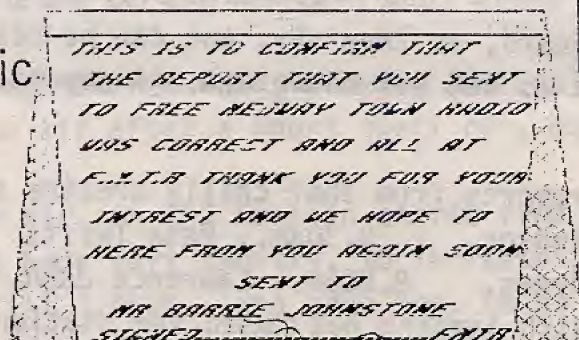 ic
THIS IS TO CONFIRM THAT
THE REPORT THAT YOU SENT
TO FREE MEDWAY TOWN RADIO
WAS CORRECT AND ALL AT
F.M.T.R THANK YOU FOR YOUR
INTREST AND WE HOPE TO
HERE FROM YOU AGAIN SOON
SENT TO
MR BARRIE JOHNSTONE
SIGNED FMTR